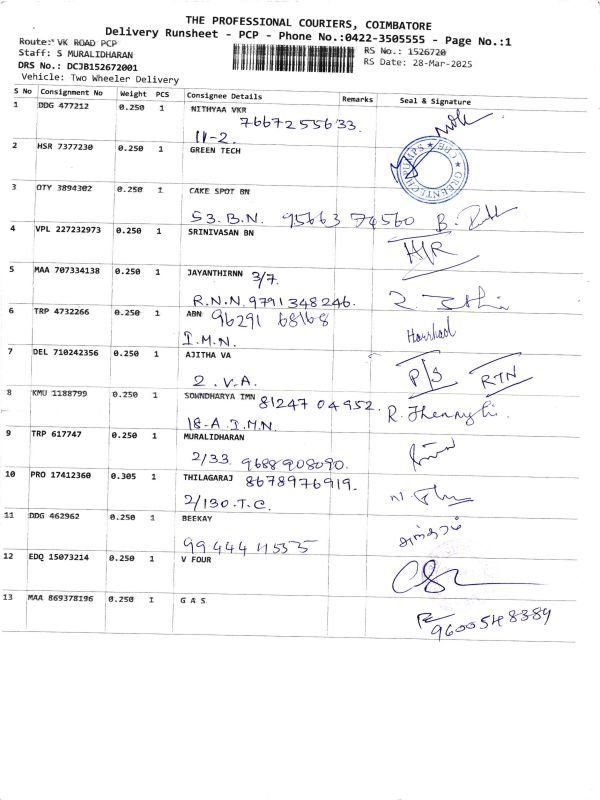 THE PROFESSIONAL COURIERS, COIMBATORE
Delivery Runsheet - PCP - Phone No.:0422-3505555 - Page No.:1
Route: VK ROAD PCP
Staff: S MURALIDHARAN
RS No.: 1526720
DRS No.: DCJB152672001
RS Date: 28-Mar-2025
Vehicle: Two Wheeler Delivery
S No Consignment No Weight PCS Consignee Details Remarks Seal & Signature
1 DDG 477212 0.250 1 NITHYAA VKR
7667255633.
11-2.
2 HSR 7377230 0.250 1 GREEN TECH
GREENTECH PUMPS CBE
3 QTY 3894302 0.250 1 CAKE SPOT BN
53. B.N. 95663 74560
4 VPL 227232973 0.250 1 SRINIVASAN BN
H/R
5 MAA 707334138 0.250 1 JAYANTHIRNN 3/7.
R.N.N. 9791348246.
6 TRP 4732266 0.250 1 ABN 96291 68168
I.M.N.
7 DEL 710242356 0.250 1 AJITHA VA
2. V.A. P/S RTN
8 KMU 1188799 0.250 1 SOWNDHARYA IMN 81247 04952.
18-A. I.M.N.
9 TRP 617747 0.250 1 MURALIDHARAN
2/33. 9688908090.
10 PRO 17412360 0.305 1 THILAGARAJ 8678976919.
2/130. T.C.
11 DDG 462962 0.250 1 BEEKAY
12 EDQ 15073214 0.250 1 V FOUR
13 MAA 869378196 0.250 1 G A S
9600548389